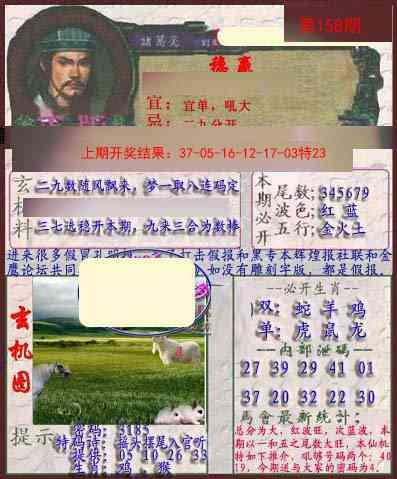 第158期
諸葛亮
稳赢
宜：宜单，吼大
忌：二九分开
上期开奖结果：37-05-16-12-17-03特23
玄机料
二九数随风飘来，梦一取八连码定
三七选稳开本期，九来三合为数棒
本期必开
尾数;345679
波色;红 蓝
五行;金火土
进来很多假冒
打击假报和黑专本辉煌报社联和金
鹰论坛共同
如没有雕刻字版，都是假报.
玄机图
--必开生肖--
双: 蛇 羊 鸡
单: 虎 鼠 龙
--内部泄码--
27 39 29 41 01
37 20 32 22 30
馬會最新統計:
总分为大，红波旺，次蓝波，本
期以一和五之尾数大旺，本仙机
特如下推介，吼够号码两个: 40
19，今期送与大家的密码为4.
提示
密码: 3185
特码诗: 摇头摆尾入官听
提供: 05 10 26 33
生肖: 鸡 . 猴